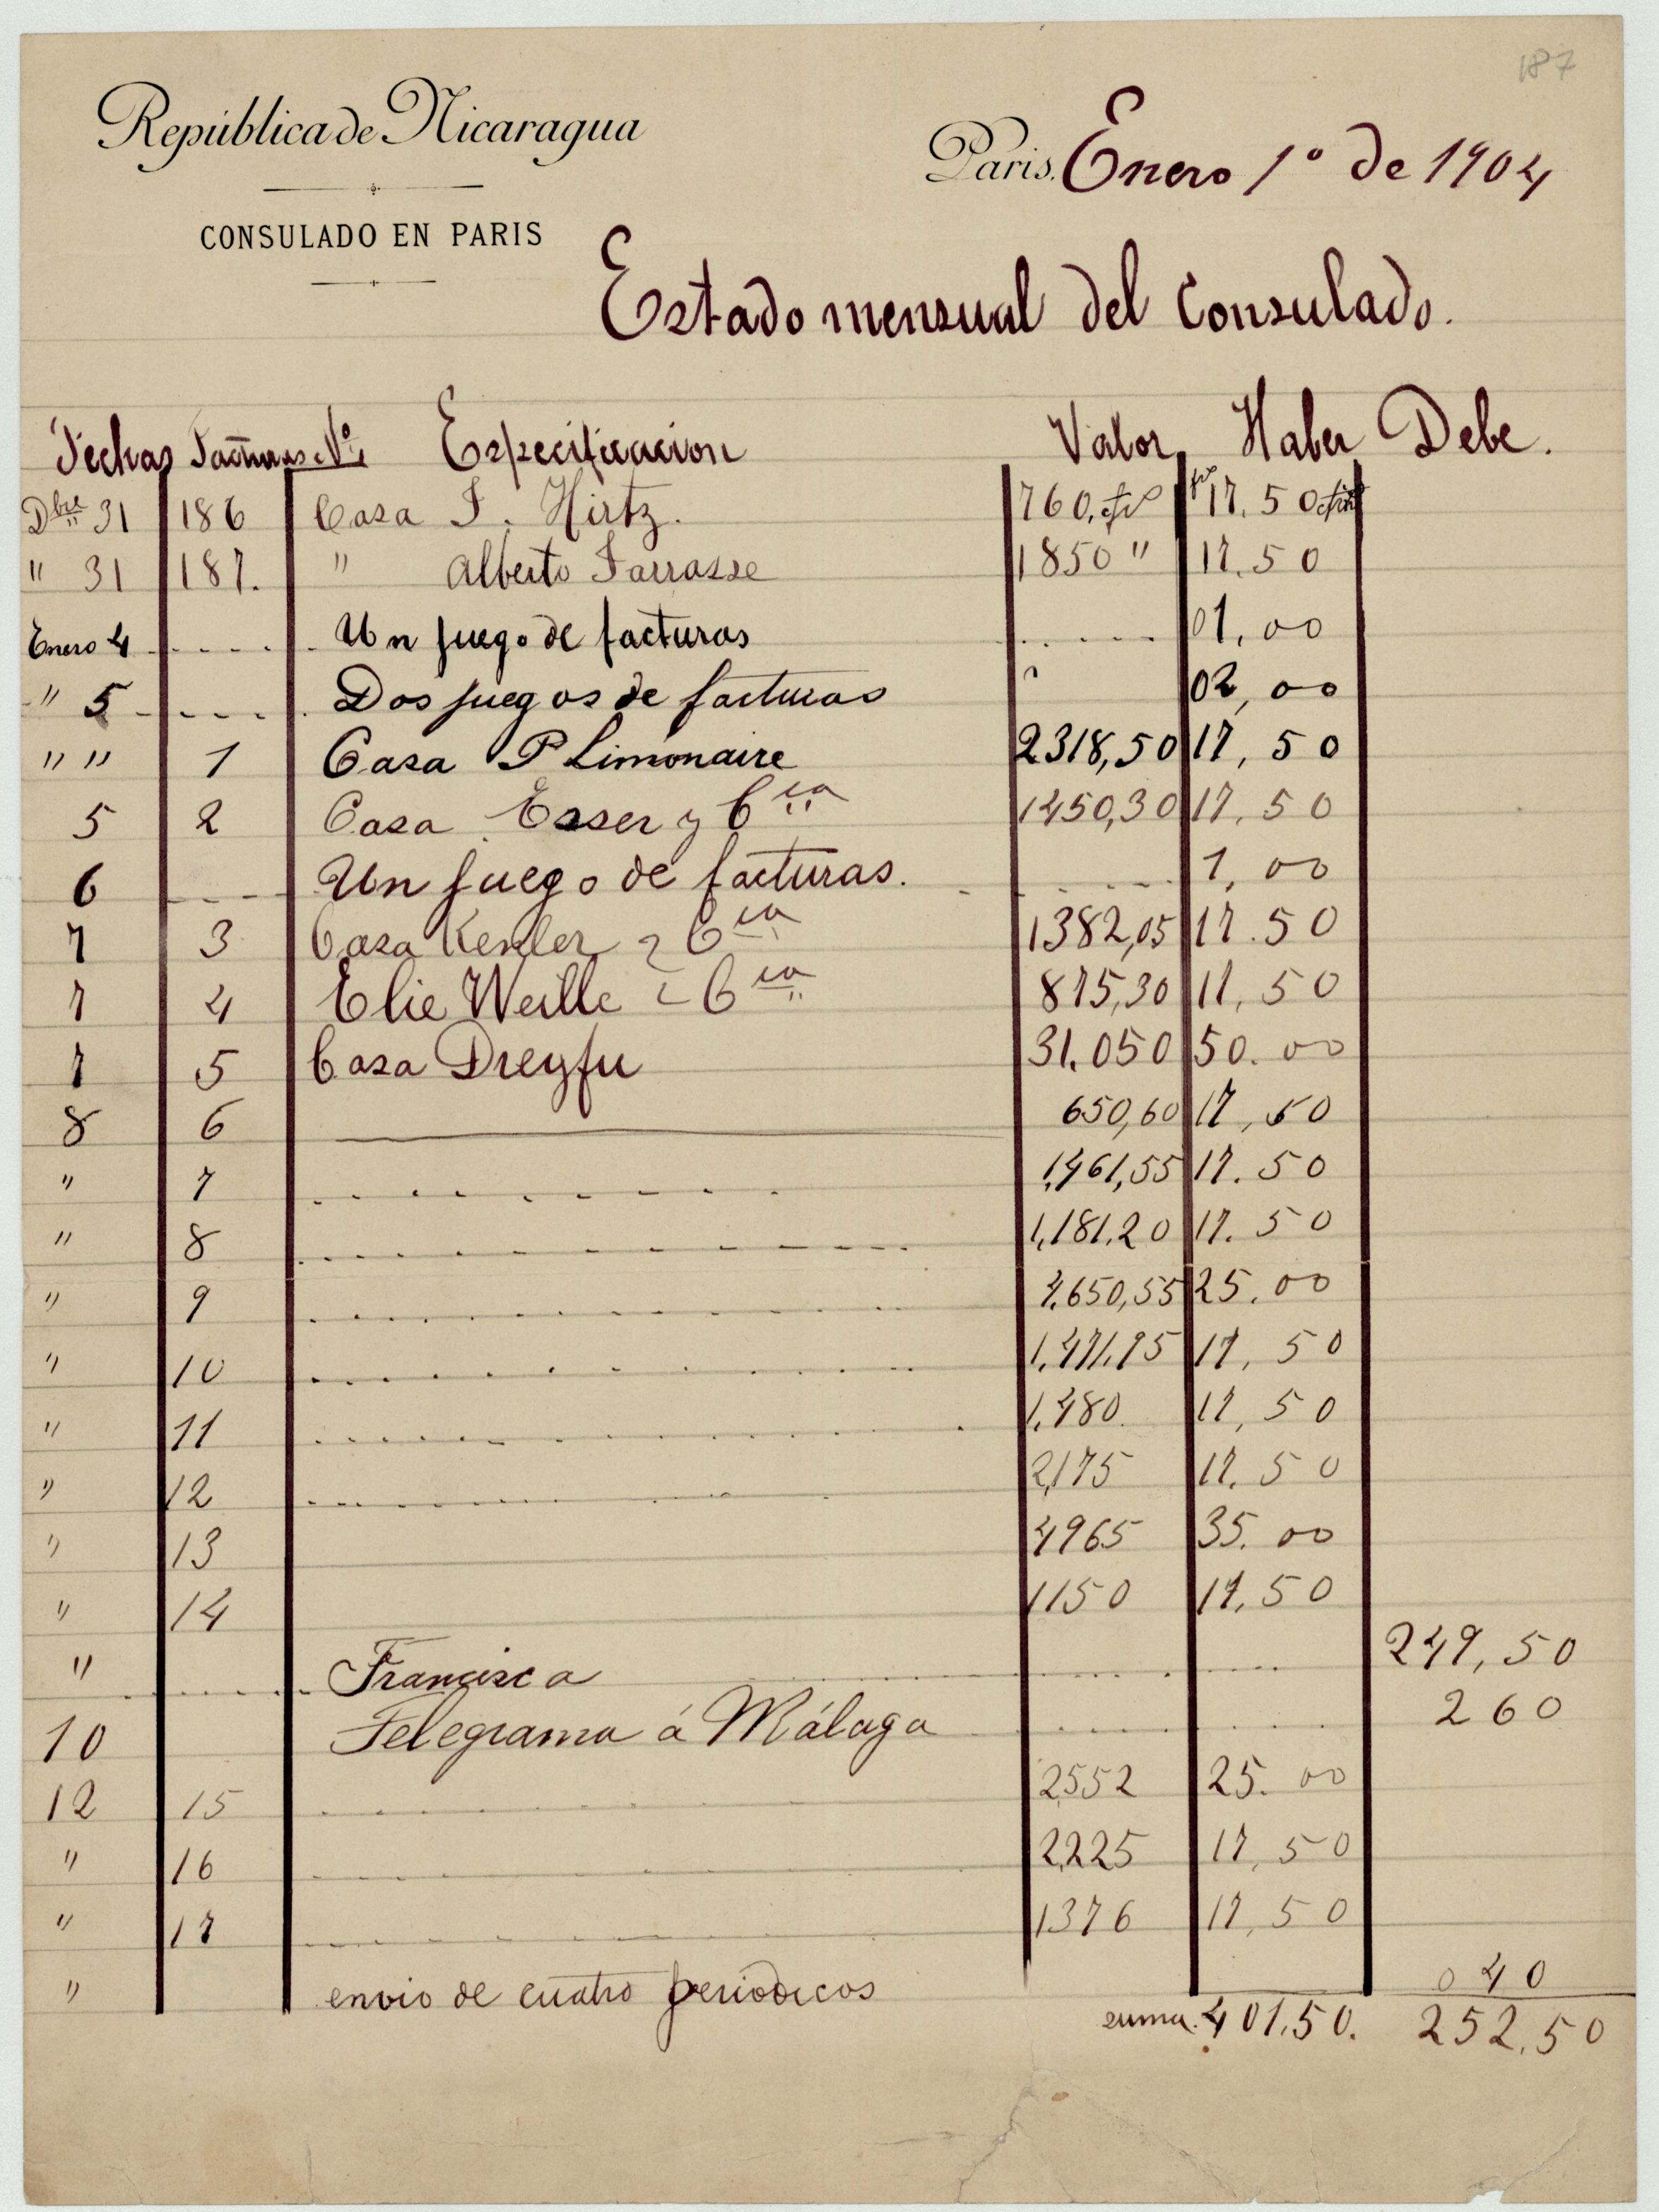 187
República de Nicaragua
Paris, Enero 1º de 1904
CONSULADO EN PARIS
Estado mensual del Consulado.
Fechas Facturas Nº Especificacion Valor Haber Debe.
Dbre 31 186 Casa J. Hirtz. 760, fr 17.50
" 31 187. " Alberto Farrasse 1850 " 17.50
Enero 4 Un juego de facturas 01,00
" 5 Dos juegos de facturas " 02,00
" " 1 Casa P Limonaire 2318,50 17,50
5 2 Casa Esser y Cia 1450,30 17,50
6 Un juego de facturas. 1,00
7 3 Casa Kenler y Cia 1382,05 17.50
7 4 Elie Weille y Cia 875,30 17,50
7 5 Casa Dreyfu 31.050 50.00
8 6 650,60 17,50
" 7 1,461,55 17.50
" 8 1,181,20 17.50
" 9 4,650,55 25.00
" 10 1,471,75 17,50
" 11 1,480. 17,50
" 12 2,175 17.50
" 13 4965 35.00
" 14 1150 17,50
" Francisca 249,50
10 Telegrama á Málaga 260
12 15 2552 25.00
" 16 2,225 17,50
" 17 1376 17,50
" envio de cuatro periodicos 040
suma. 401,50. 252,50